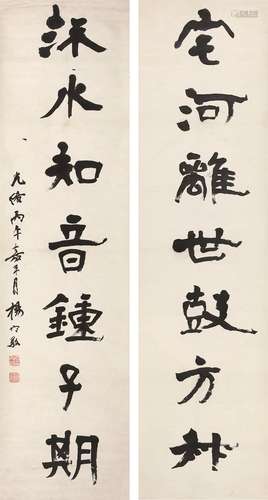 宅河離世鼓方叔
流水知音鍾子期
光緒丙午嘉平月楊守敬